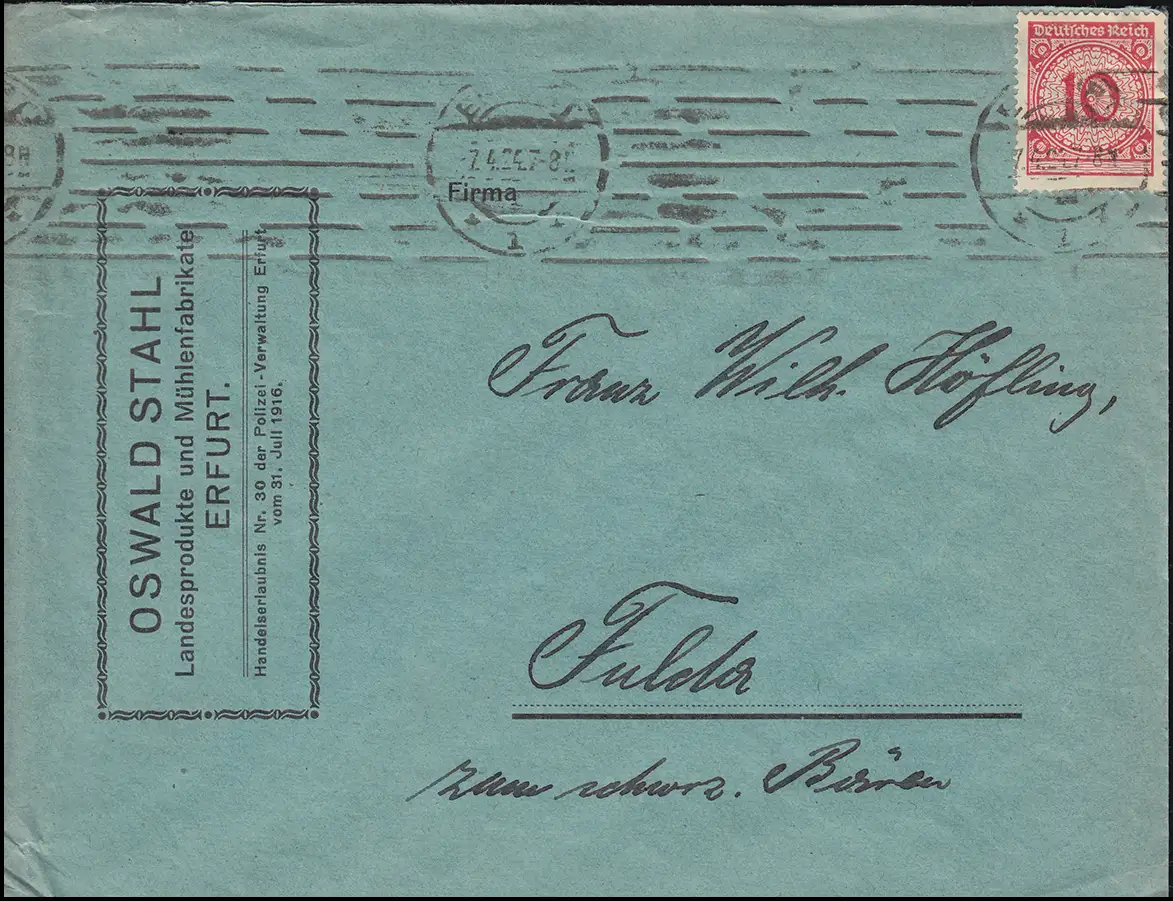 Deutsches Reich
10
7.4.24.7-8
1
Firma
OSWALD STAHL
Landesprodukte und Mühlenfabrikate
ERFURT.
Handelserlaubnis Nr. 30 der Polizei-Verwaltung Erfurt
vom 31. Juli 1916.
Franz Wilh. Höfling,
Fulda
zum schwrz. Bären